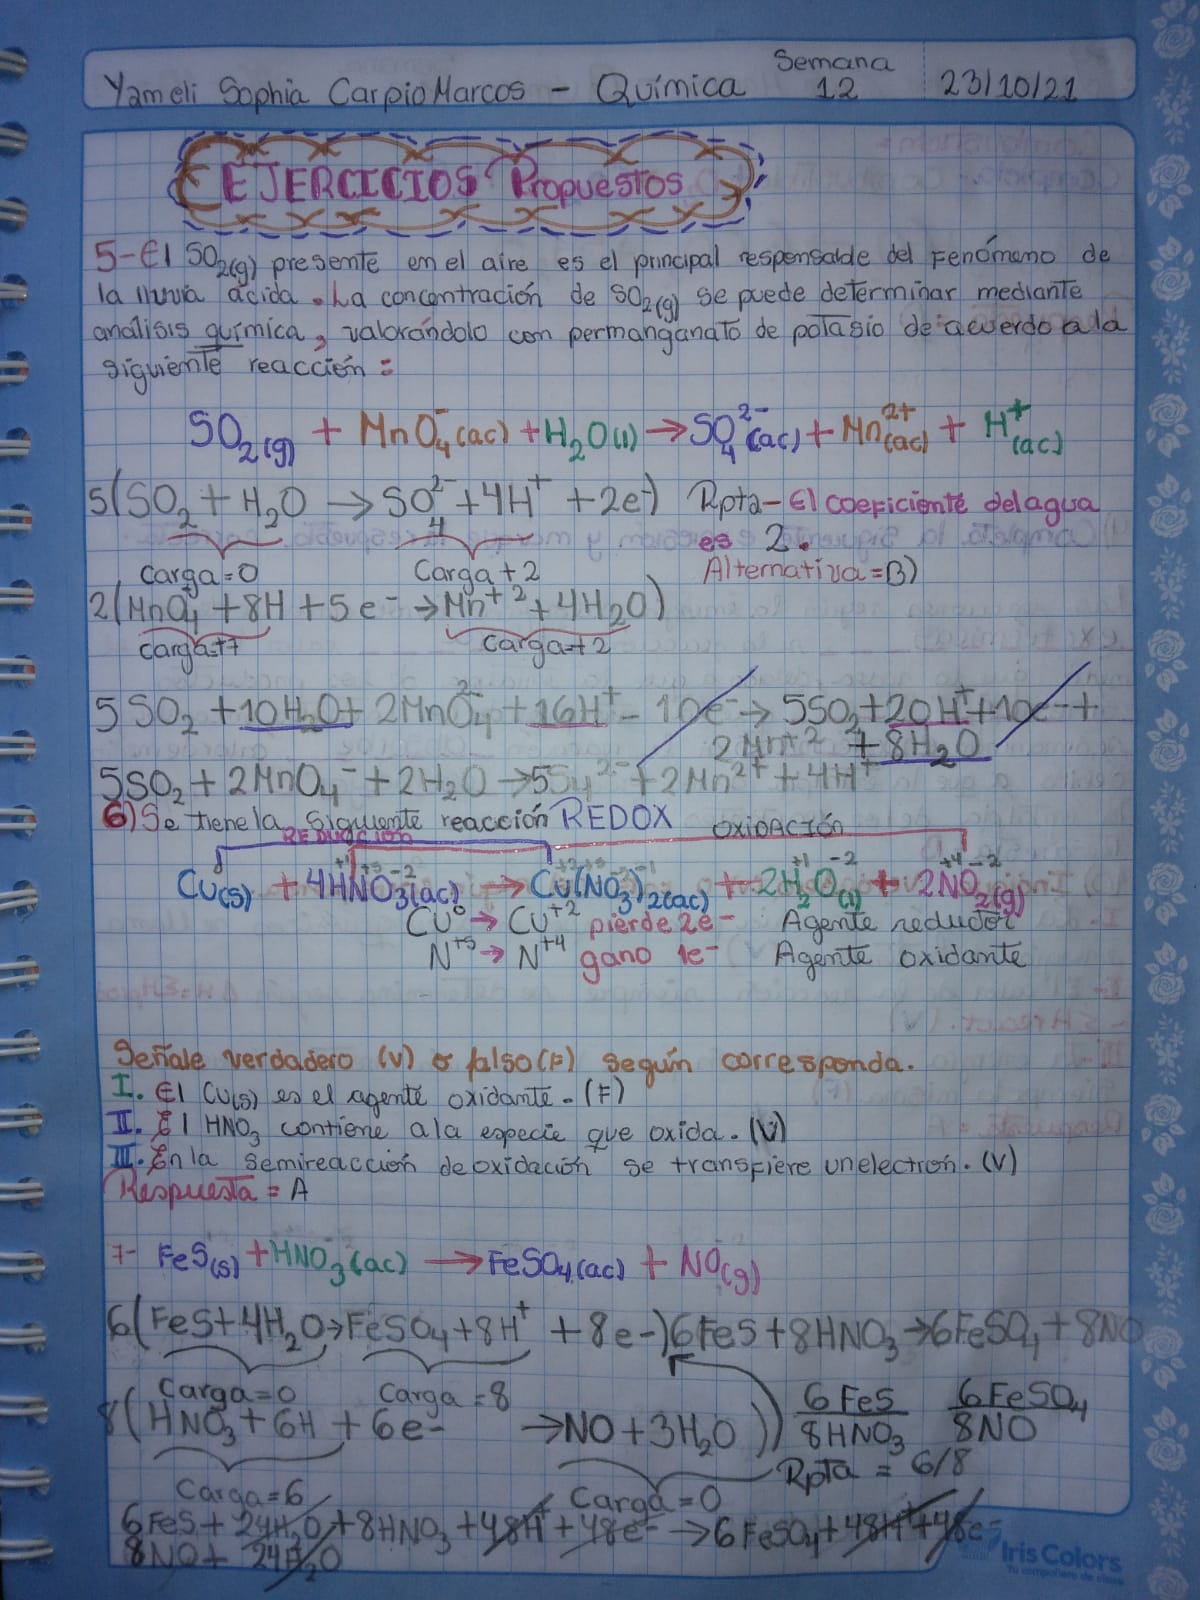 Yameli Sophia Carpio Marcos - Química Semana 12 23/10/21
EJERCICIOS Propuestos
5- El SO2(g) presente en el aire es el principal responsable del Fenómeno de
la lluvia ácida. La concentración de SO2(g) se puede determinar mediante
analisis química, valorándolo con permanganato de potasio de acuerdo a la
siguiente reacción:
SO2(g) + MnO4⁻(ac) + H2O(l) → SO4²⁻(ac) + Mn²⁺(ac) + H⁺(ac)
5(SO2 + H2O → SO4²⁻ + 4H⁺ + 2e⁻) Rpta- El coeficiente del agua
es 2.
Carga=0 Carga+2 Alternativa=B)
2(MnO4 + 8H + 5e⁻ → Mn⁺² + 4H2O)
carga=+7 carga=+2
5SO2 + 10H2O + 2MnO4²⁻ + 16H⁺ - 10e⁻ → 5SO2 + 20H⁺ + 10e⁻ +
2Mn⁺² + 8H2O
5SO2 + 2MnO4⁻ + 2H2O → 5S4²⁻ + 2Mn²⁺ + 4H⁺
6) Se tiene la siguiente reacción REDOX
REDUCCIÓN OXIDACIÓN
+1 +5 -2 +2 +5 -2 +1 -2 +4 -2
Cu(s) + 4HNO3(ac) → Cu(NO3)2(ac) + 2H2O(l) + 2NO2(g)
Cu⁰ → Cu⁺² pierde 2e⁻ Agente reductor
N⁺⁵ → N⁺⁴ gano 1e⁻ Agente oxidante
Señale verdadero (V) o falso (F) según corresponda.
I. El Cu(s) es el agente oxidante. (F)
II. El HNO3 contiene a la especie que oxida. (V)
III. En la semireacción de oxidación se transfiere un electron. (V)
Respuesta = A
7- FeS(s) + HNO3(ac) → FeSO4(ac) + NO(g)
6(FeS + 4H2O → FeSO4 + 8H⁺ + 8e-) 6FeS + 8HNO3 → 6FeSO4 + 8NO
Carga=0 Carga=8
8(HNO3 + 6H + 6e- → NO + 3H2O)) 6FeS/8HNO3 6FeSO4/8NO
Rpta = 6/8
Carga=6 Carga=0
6FeS + 24H2O + 8HNO3 + 48H⁺ + 48e⁻ → 6FeSO4 + 48H⁺ + 48e⁻
8NO + 24H2O
Iris Colors
Tu compañero de clase